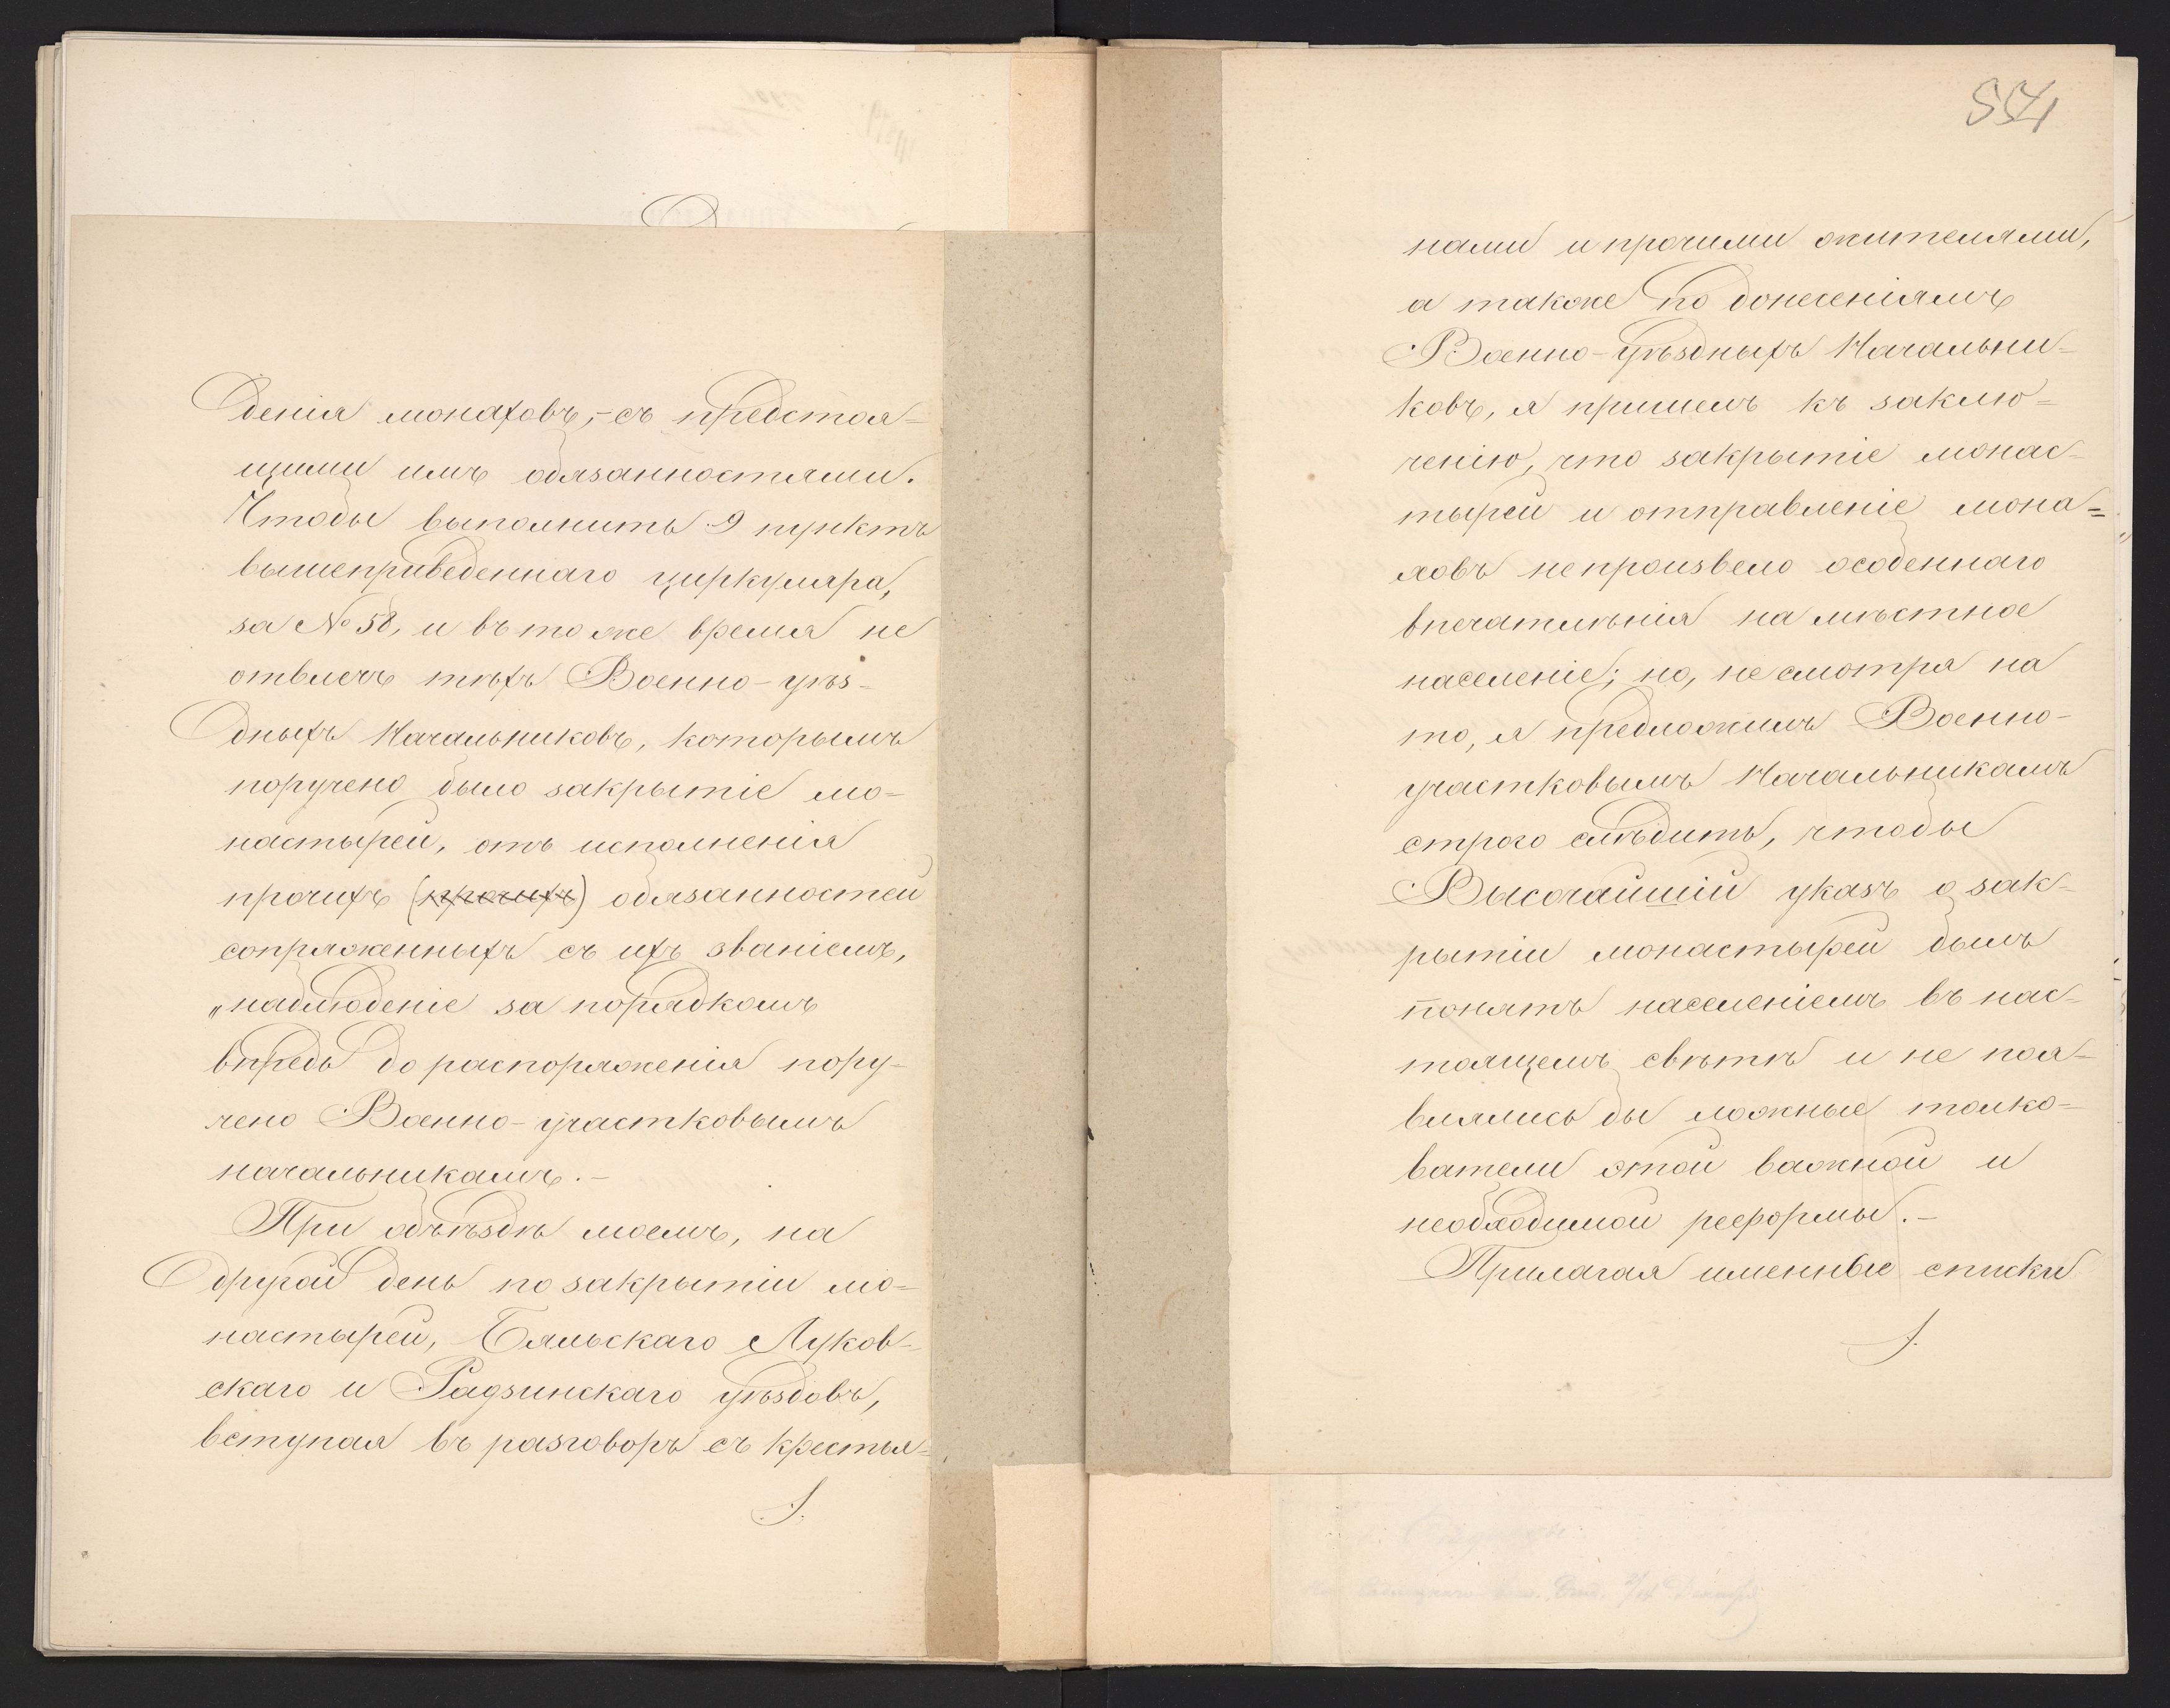 денія монаховъ,- съ предстоя-
щими имъ обязанностями.
Чтобы выполнить 9 пунктъ
вышеприведеннаго циркуляра,
за № 58, и въ тоже время не
отвлечь тѣхъ Военно-уѣз-
дныхъ Начальниковъ, которымъ
поручено было закрытіе мо-
настырей, отъ исполненія
прочихъ (прочихъ) обязанностей
сопряженныхъ съ ихъ званіемъ,
„наблюденіе за порядкомъ
впредь до распоряженія пору-
чено Военно-участковымъ
начальникамъ.-
При объѣздѣ моемъ, на
другой день по закрытіи мо-
настырей, Бяльскаго Луков-
скаго и Радзинскаго уѣздовъ,
вступая въ разговоръ съ крестья-
554
нами и прочими жителями,
а также по донесеніямъ
Военно-уѣздныхъ Начальни-
ковъ, я пришелъ къ заклю-
ченію, что закрытіе монас-
тырей и отправленіе мона-
ховъ не произвело особеннаго
впечатлѣнія на мѣстное
населеніе; но, не смотря на
то, я предложилъ Военно-
участковымъ Начальникамъ
строго слѣдить, чтобы
Высочайшій указъ о зак-
рытіи монастырей былъ
понятъ населеніемъ въ нас-
тоящемъ свѣтѣ и не поя-
влялись бы ложные толко-
ватели этой важной и
необходимой реформы.-
Прилагая именные списки